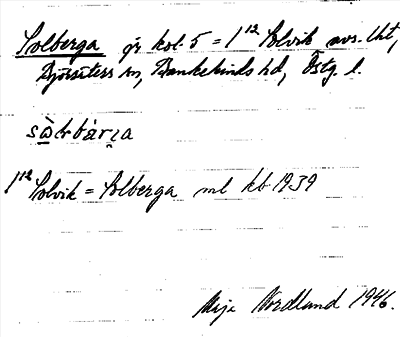 Solberga gd kol. 5 = 1¹² Solvik avs. lht,
Björsäters sn, Bankekinds hd, Östg. l.
sɷ̀lbár̯ɩa
1¹² Solvik = Solberga enl kb 1939
Maja Nordlund 1946.